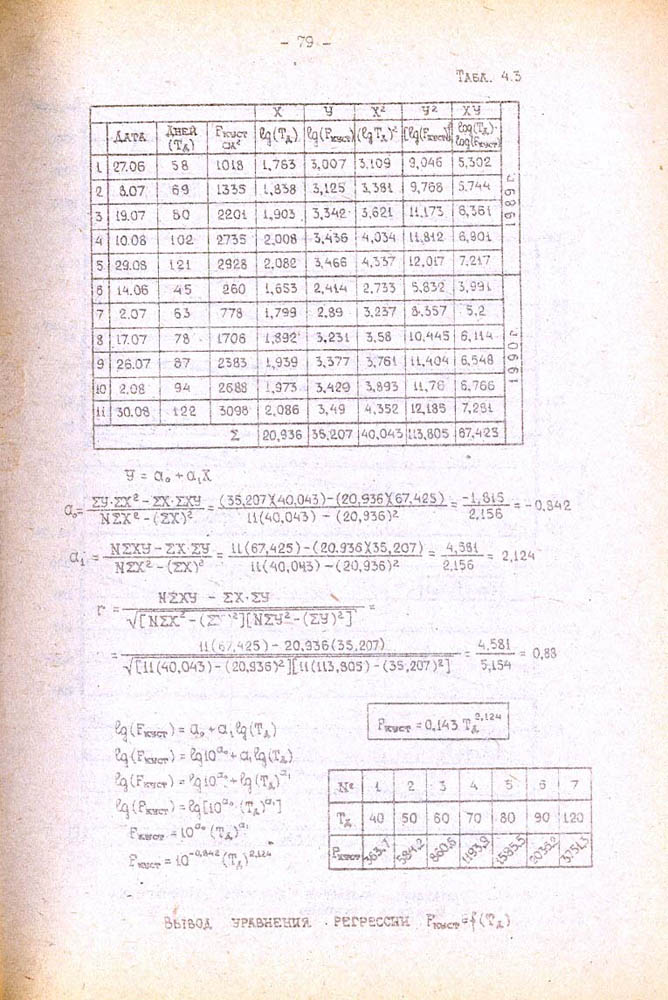 - 79 -
ТАБЛ. 4.3
X У X² У² XУ
ДАТА ДНЕЙ (Tд) Fкуст см² lg(Tд) lg(Fкуст) (lg Tд)² (lg(Fкуст))² log(Tд)· log(Fкуст)
1 27.06 58 1018 1,763 3,007 3,109 9,046 5,302
2 8.07 69 1335 1,838 3,125 3,381 9,768 5,744
3 19.07 80 2201 1,903 3,342 3,621 11,173 6,361
4 10.08 102 2735 2,008 3,436 4,034 11,812 6,901
5 29.08 121 2928 2,082 3,466 4,337 12,017 7,217
1989 г.
6 14.06 45 260 1,653 2,414 2,733 5,832 3,991
7 2.07 63 778 1,799 2,89 3,237 8,357 5,2
8 17.07 78 1706 1,892 3,231 3,58 10,445 6,114
9 26.07 87 2383 1,939 3,377 3,761 11,404 6,548
10 2.08 94 2688 1,973 3,429 3,893 11,76 6,766
11 30.08 122 3098 2,086 3,49 4,352 12,185 7,281
1990 г.
Σ 20,936 35,207 40,043 113,805 67,425
У = a₀ + a₁X
a₀ = ΣУ·ΣX² - ΣX·ΣXУ / NΣX² - (ΣX)² = (35,207)(40,043)-(20,936)(67,425) / 11(40,043) - (20,936)² = -1,815 / 2,156 = -0,842
a₁ = NΣXУ - ΣX·ΣУ / NΣX² - (ΣX)² = 11(67,425)-(20.936)(35,207) / 11(40,043) - (20,936)² = 4,581 / 2,156 = 2,124
r = NΣXУ - ΣX·ΣУ / √[NΣX² - (ΣX)²][NΣУ² - (ΣУ)²] =
= 11(67,425) - 20,936(35,207) / √[11(40,043) - (20,936)²][11(113,805) - (35,207)²] = 4,581 / 5,154 = 0,88
lg(Fкуст) = a₀ + a₁ lg(Tд)
Fкуст = 0,143 Tд^2,124
lg(Fкуст) = lg10^a₀ + a₁ lg(Tд)
lg(Fкуст) = lg10^a₀ + lg(Tд)^a₁
lg(Fкуст) = lg[10^a₀ · (Tд)^a₁]
Fкуст = 10^a₀ (Tд)^a₁
Fкуст = 10^-0,842 (Tд)^2,124
№ 1 2 3 4 5 6 7
Tд 40 50 60 70 80 90 120
Fкуст 363,7 584,2 860,6 1193,9 1585,5 2036,2 3751,3
ВЫВОД УРАВНЕНИЯ РЕГРЕССИИ Fкуст = f(Tд)